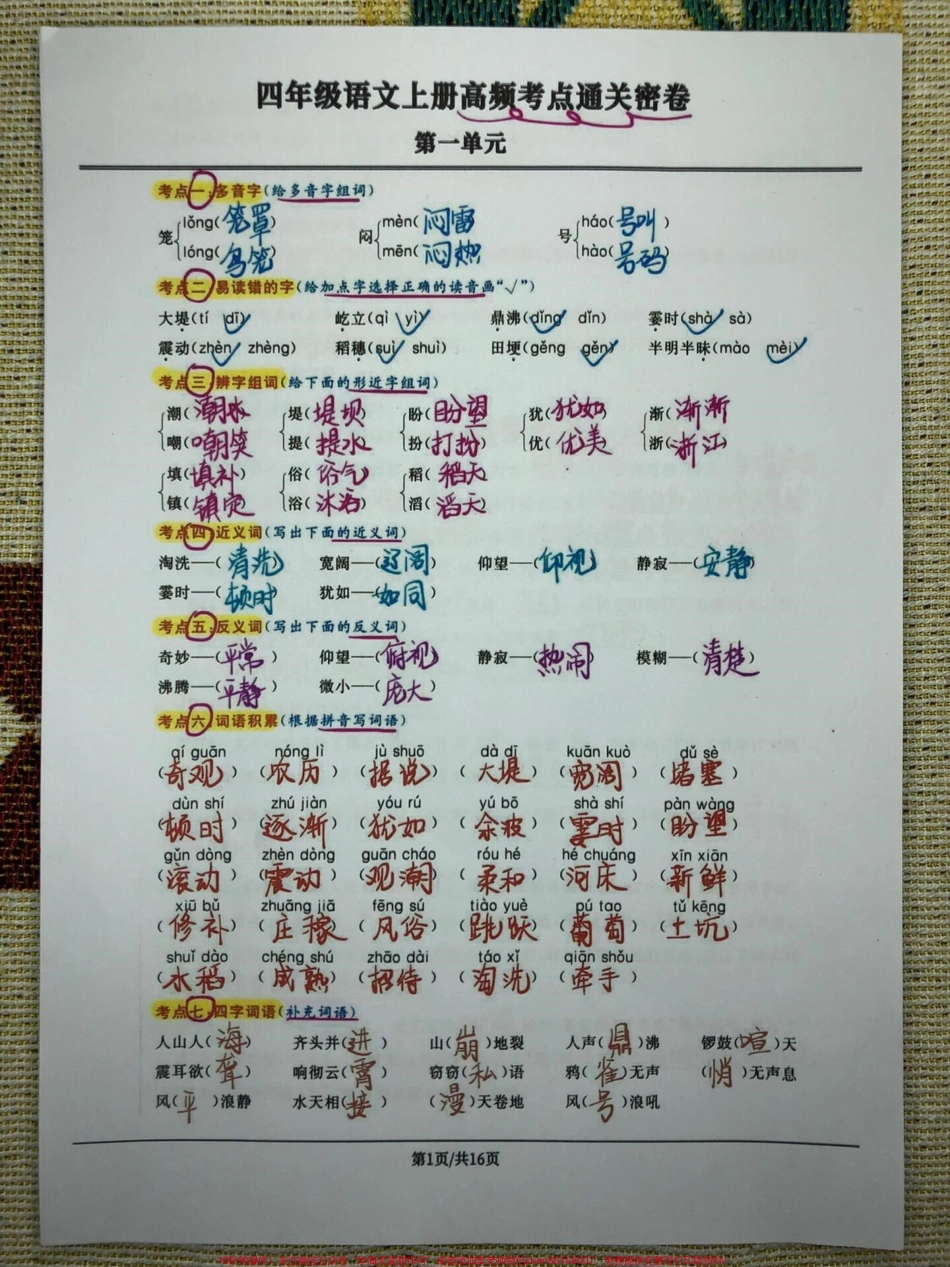 四年级语文上册高频考点通关密卷
第一单元
考点一：多音字（给多音字组词）
笼{lǒng(笼罩) 闷{mèn(闷雷) 号{háo(号叫)
lóng(鸟笼) mēn(闷热) hào(号码)
考点二：易读错的字（给加点字选择正确的读音画“√”）
大堤(tí dī√) 屹立(qì yì√) 鼎沸(dǐng√ dǐn) 霎时(shà√ sà)
震动(zhèn√ zhèng) 稻穗(suì√ shuì) 田埂(gěng gěn√) 半明半昧(mào mèi√)
考点三：辨字组词（给下面的形近字组词）
潮(潮水) 堤(堤坝) 盼(盼望) 犹(犹如) 渐(渐渐)
嘲(嘲笑) 提(提水) 扮(打扮) 优(优美) 浙(浙江)
填(填补) 俗(俗气) 稻(稻天)
镇(镇定) 浴(沐浴) 滔(滔天)
考点四：近义词（写出下面的近义词）
淘洗——(清洗) 宽阔——(辽阔) 仰望——(仰视) 静寂——(安静)
霎时——(顿时) 犹如——(如同)
考点五：反义词（写出下面的反义词）
奇妙——(平常) 仰望——(俯视) 静寂——(热闹) 模糊——(清楚)
沸腾——(平静) 微小——(庞大)
考点六：词语积累（根据拼音写词语）
qí guān nóng lì jù shuō dà dī kuān kuò dǔ sè
(奇观) (农历) (据说) (大堤) (宽阔) (堵塞)
dùn shí zhú jiàn yóu rú yú bō shà shí pàn wàng
(顿时) (逐渐) (犹如) (余波) (霎时) (盼望)
gǔn dòng zhèn dòng guān cháo róu hé hé chuáng xīn xiān
(滚动) (震动) (观潮) (柔和) (河床) (新鲜)
xiū bǔ zhuāng jiā fēng sú tiào yuè pú tao tǔ kēng
(修补) (庄稼) (风俗) (跳跃) (葡萄) (土坑)
shuǐ dào chéng shú zhāo dài táo xǐ qiān shǒu
(水稻) (成熟) (招待) (淘洗) (牵手)
考点七：四字词语（补充词语）
人山人(海) 齐头并(进) 山(崩)地裂 人声(鼎)沸 锣鼓(喧)天
震耳欲(聋) 响彻云(霄) 窃窃(私)语 鸦(雀)无声 (悄)无声息
风(平)浪静 水天相(接) (漫)天卷地 风(号)浪吼
第1页/共16页